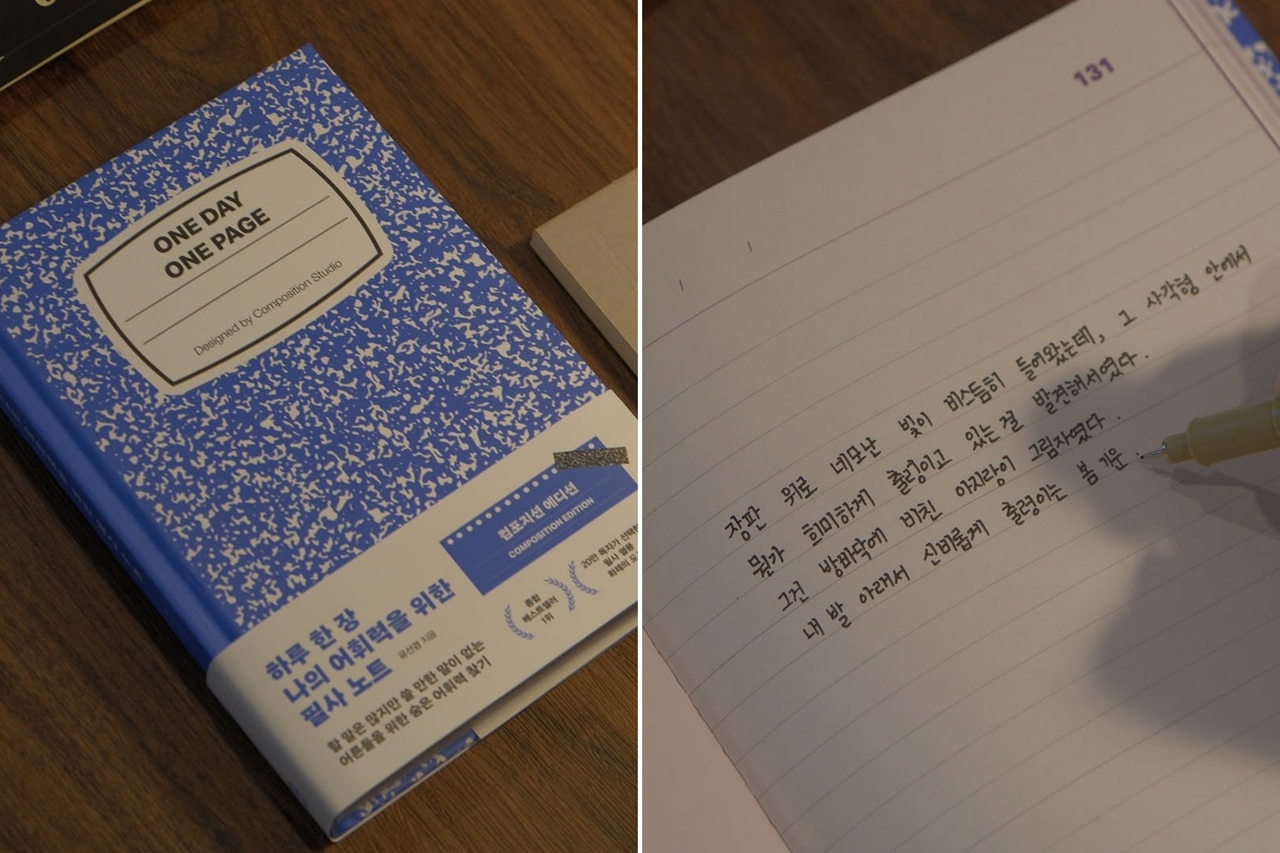 ONE DAY
ONE PAGE
Designed by Composition Studio
컴포지션 에디션
COMPOSITION EDITION
종합
베스트셀러
1위
20만 독자가 선택한
필사 열풍
화제의 도
하루 한 장
나의 어휘력을 위한
필사 노트
유선경 지음
할 말은 많지만 쓸 만한 말이 없는
어른들을 위한 숨은 어휘력 찾기
131
장판 위로 네모난 빛이 비스듬히 들어왔는데, 그 사각형 안에서
뭔가 희미하게 출렁이고 있는 걸 발견해서였다.
그건 방바닥에 비친 아지랑이 그림자였다.
내 발 아래서 신비롭게 출렁이는 봄 기운